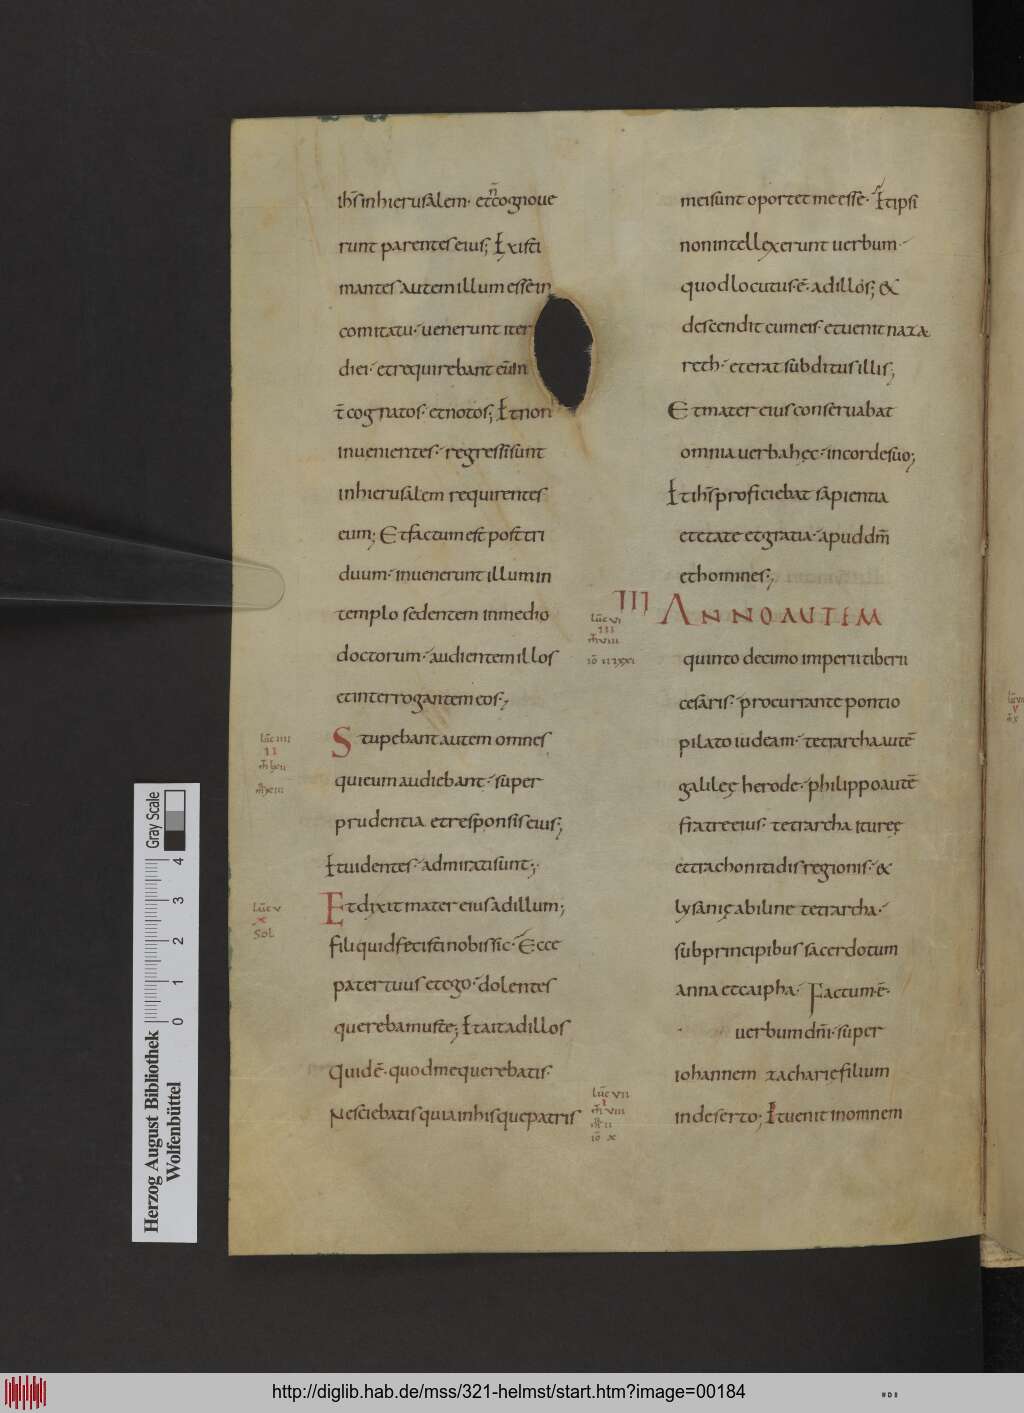 ihs̄ inhierusalem· etn̄cognoue
runt parentes eius; Existi
mantes autem illum esse in
comitatu· uenerunt iter
diei· et requirebant eūin
t̄ cognatos· et notos; Et non
inuenientes· regressi sunt
inhierusalem requirentes
eum; Et factum est post tri
duum· inuenerunt illum in
templo sedentem in medio
doctorum· audientem illos
et interrogantem eos;
luc̄ IIII
II
Stupebant autem omnes
qui eum audiebant· super
prudentia et responsis eius;
Et uidentes· admirati sunt;
luc̄ V
X
Sol
Et dixit mater eius ad illum;
fili quid fecisti nobis sic· Ecce
pater tuus et ego· dolentes
querebamus te; Et ait ad illos
Quid ē· quod me querebatis·
Nesciebatis quia in his que patris
mei sunt oportet me esse· Et ipsi
non intellexerunt uerbum·
quod locutus ē· ad illos; &
descendit cum eis· et uenit naza
reth· et erat subditus illis;
Et mater eius conseruabat
omnia uerba hęc· in corde suo;
Et ihs̄ proficiebat sapientia
et etate et gratia· apud dm̄
et homines;
luc̄ VI
III
m̄ VIII
iō II XXI
III ANNO AUTEM
quinto decimo imperii tiberii
cesaris· procurrante pontio
pilato iudeam· tetrarcha autē
galileę herode· philippo autē
fratre eius· tetrarcha itureę
et trachonitidis regionis· &
lysanię abiline tetrarcha·
sub principibus sacerdotum
anna et caipha· Factum ē·
uerbum dn̄i· super
iohannem zacharię filium
luc̄ VII
I
m̄ VIII
II
iō X
in deserto; Et uenit in omnem
Gray Scale
0 1 2 3 4
Herzog August Bibliothek
Wolfenbüttel
http://diglib.hab.de/mss/321-helmst/start.htm?image=00184